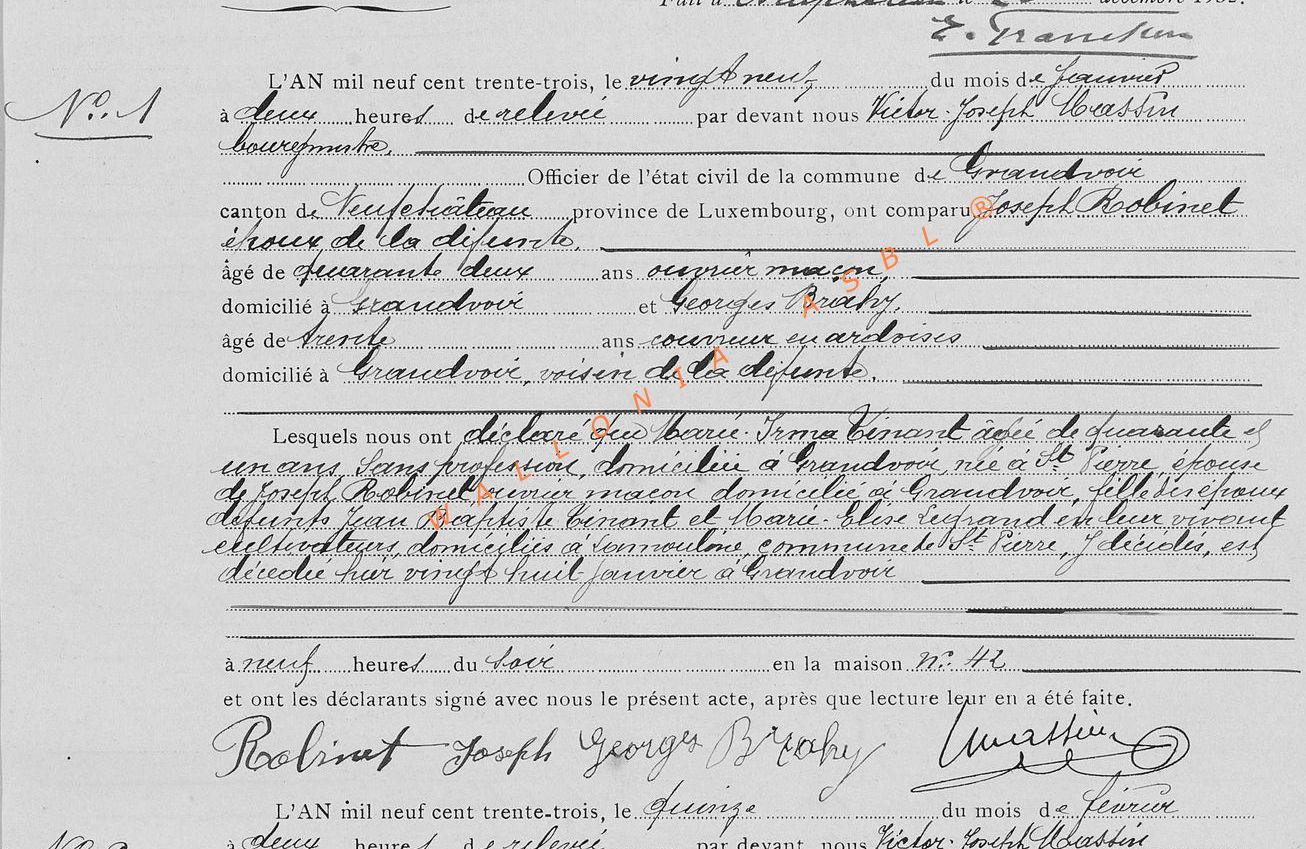 décembre 1932.
N°. 1
L'AN mil neuf cent trente-trois, le vingt neuf du mois de Janvier
à deux heures de relevée par devant nous Victor-Joseph Massin
bourgmestre.
Officier de l'état civil de la commune de Grandvoir
canton de Neufchâteau province de Luxembourg, ont comparu Joseph Robinet
époux de la défunte.
âgé de quarante deux ans ouvrier maçon,
domicilié à Grandvoir et Georges Brahy,
âgé de trente ans couvreur en ardoises
domicilié à Grandvoir, voisin de la défunte.
Lesquels nous ont déclaré que Marie-Irma Tinant âgée de quarante et
un ans, sans profession, domiciliée à Grandvoir, née à St Pierre, épouse
de Joseph Robinet ouvrier maçon domicilié à Grandvoir, fille des époux
défunts Jean Baptiste Tinant et Marie-Elise Legrand en leur vivant
cultivateurs, domiciliés à Lamouline, commune de St Pierre, y décédés, est
décédée hier vingt huit Janvier à Grandvoir
à neuf heures du soir en la maison n°. 42
et ont les déclarants signé avec nous le présent acte, après que lecture leur en a été faite.
Robinet Joseph Georges Brahy VMassin
L'AN mil neuf cent trente-trois, le quinze du mois de février
à deux heures de relevée par devant nous Victor-Joseph Massin
WALLONIA ASBL®